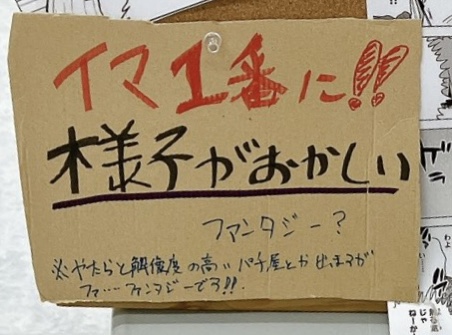 イマ1番に!!
様子がおかしい
ファンタジー?
※やたらと解像度の高いパチ屋とか出ますが
ファ…ファンタジーです!!